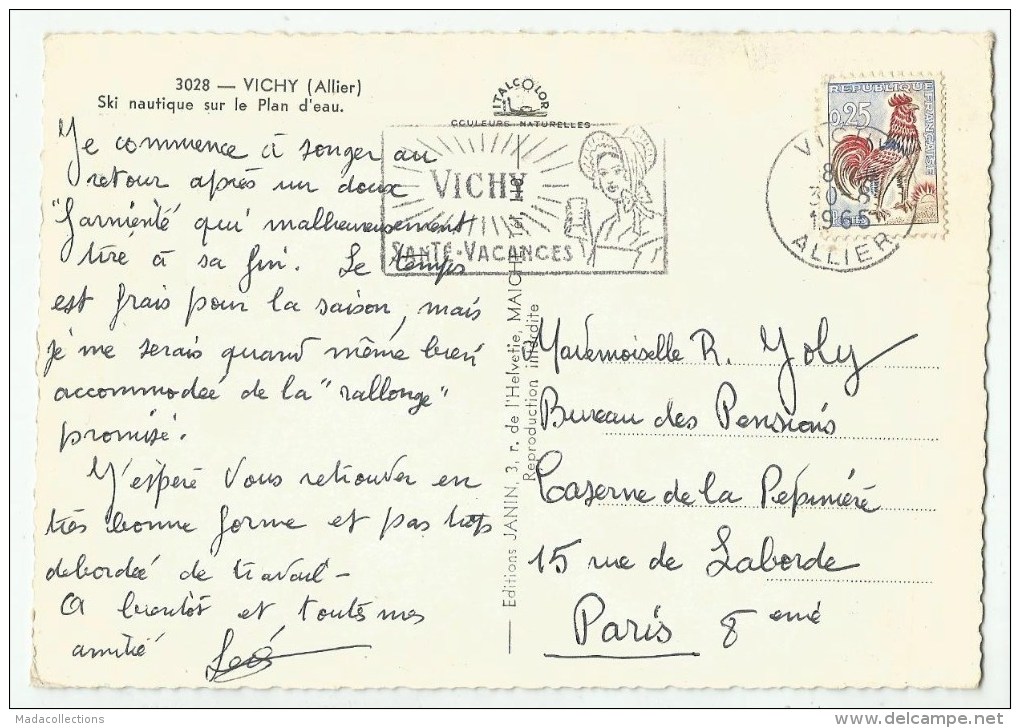 3028 — VICHY (Allier)
Ski nautique sur le Plan d'eau.
ITALCOLOR
COULEURS NATURELLES
VICHY
SANTÉ-VACANCES
REPUBLIQUE FRANÇAISE
0,25
1965
ALLIER
Je commence à songer au
retour après un doux
"farnienté qui malheureusement
tire à sa fin. Le temps
est frais pour la saison, mais
je me serais quand même bien
accommodée de la "rallonge"
promise.
J'espère vous retrouver en
très bonne forme et pas trop
débordée de travail -
A bientôt et toutes mes
amitié
Editions JANIN, 3, r. de l'Helvétie, MAICHE
Reproduction interdite
Mademoiselle R. Joly
Bureau des Pensions
Caserne de la Pépinière
15 rue de Laborde
Paris 8eme
Madacollections
www.delcampe.net